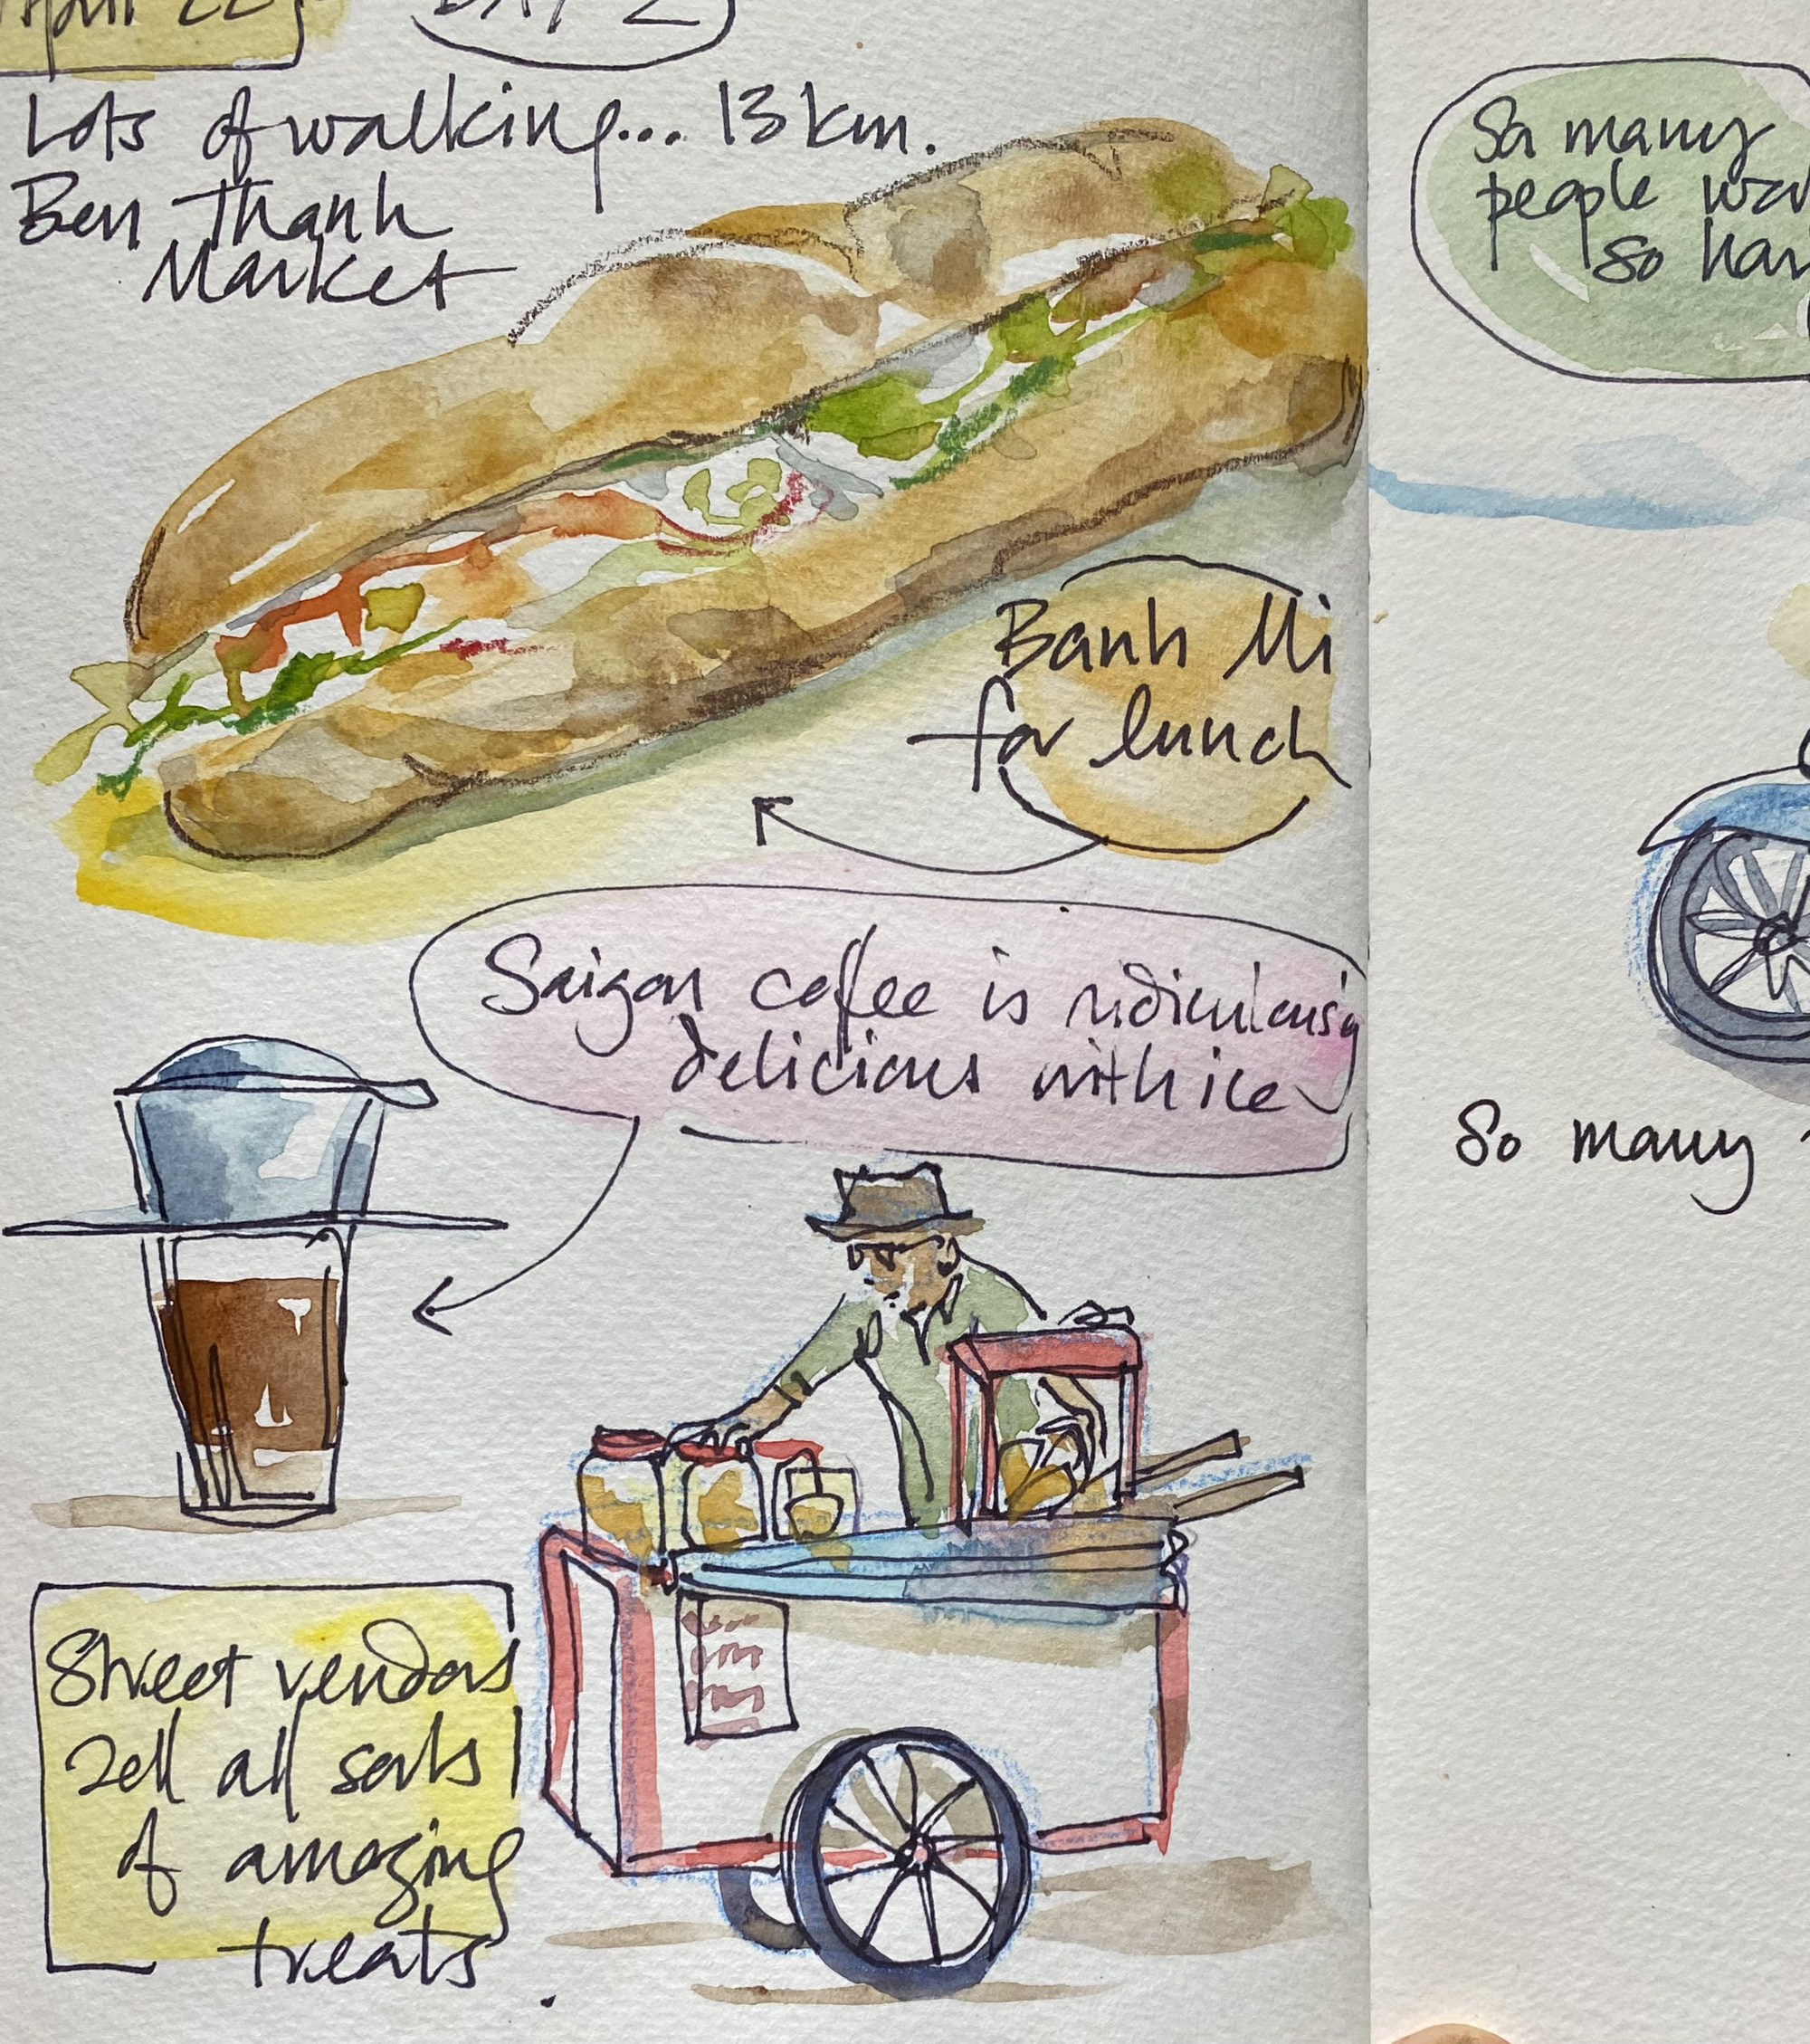 April 22
DAY 2
Lots of walking... 13 km.
Ben Thanh
Market
Banh Mi
for lunch
Saigon coffee is ridiculously
delicious with ice
Street vendors
sell all sorts
of amazing
treats.
So many
people
so
So many